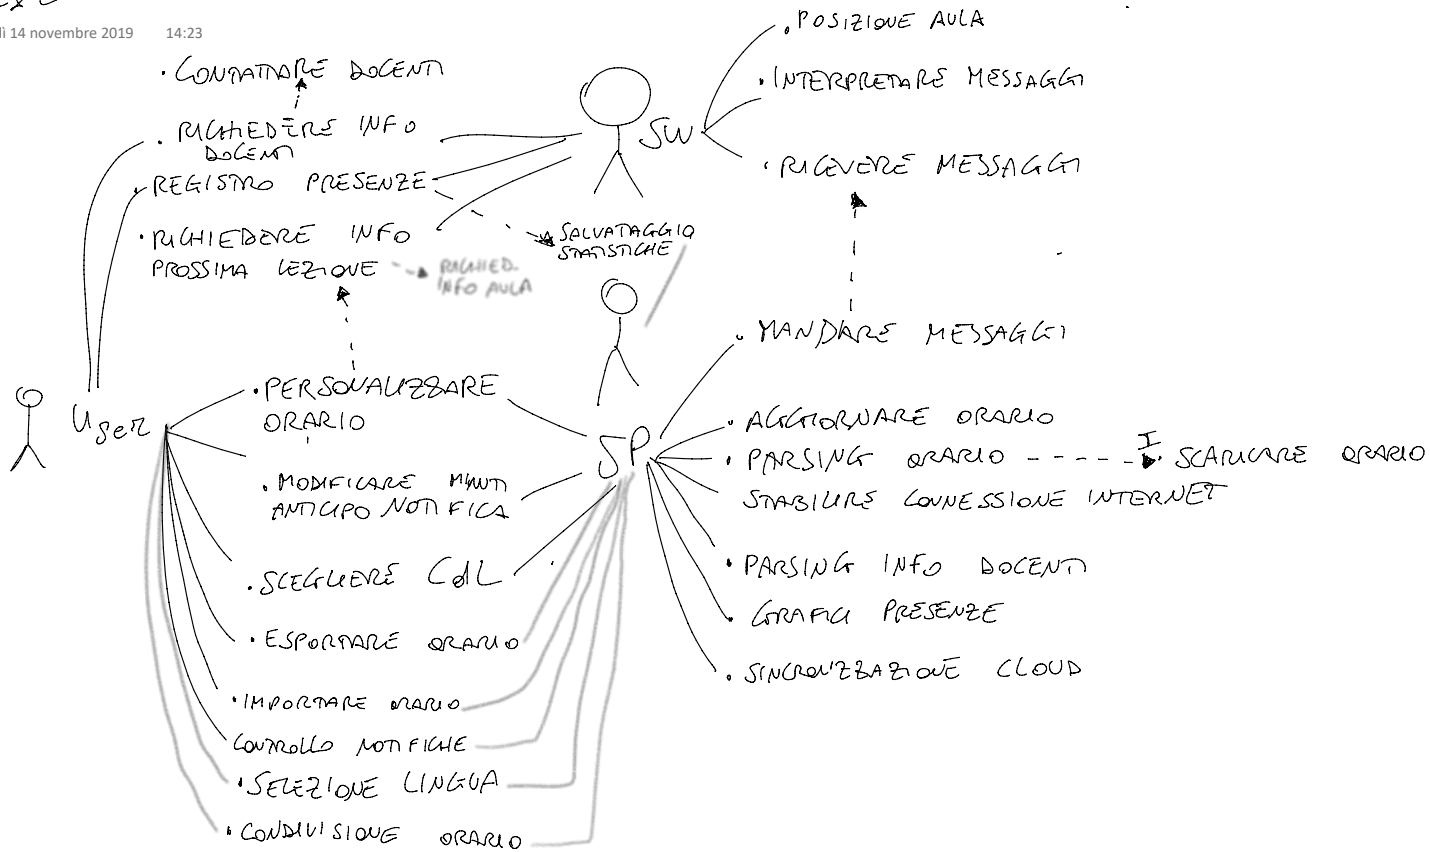 dì 14 novembre 2019 14:23
• CONTATTARE DOCENTI
• RICHIEDERE INFO
DOCENTI
• REGISTRO PRESENZE
• RICHIEDERE INFO
PROSSIMA LEZIONE
RICHIED.
INFO AULA
SALVATAGGIO
STATISTICHE
SW
• POSIZIONE AULA
• INTERPRETARE MESSAGGI
• RICEVERE MESSAGGI
User
• PERSONALIZZARE
ORARIO
• MODIFICARE MINUTI
ANTICIPO NOTIFICA
• SCEGLIERE CdL
• ESPORTARE ORARIO
• IMPORTARE ORARIO
CONTROLLO NOTIFICHE
• SELEZIONE LINGUA
• CONDIVISIONE ORARIO
SP
• MANDARE MESSAGGI
• AGGIORNARE ORARIO
• PARSING ORARIO I SCARICARE ORARIO
STABILIRE CONNESSIONE INTERNET
• PARSING INFO DOCENTI
• GRAFICI PRESENZE
• SINCRONIZZAZIONE CLOUD